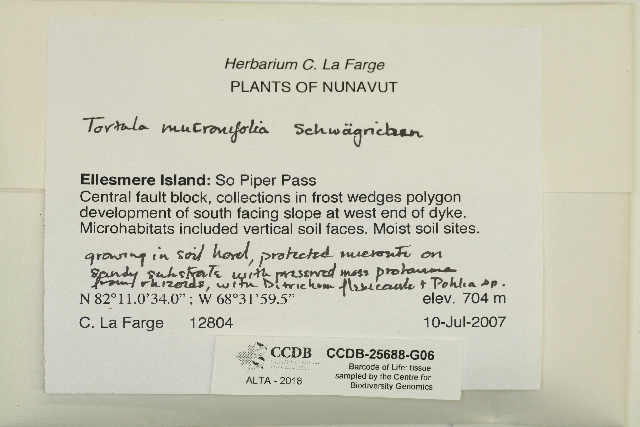 Herbarium C. La Farge
PLANTS OF NUNAVUT
Tortula mucronifolia Schwägrichen
Ellesmere Island: So Piper Pass
Central fault block, collections in frost wedges polygon
development of south facing slope at west end of dyke.
Microhabitats included vertical soil faces. Moist soil sites.
growing in soil hovel, protected microsite on
sandy substrate with preserved moss protonema
from rhizoids, with Ditrichum flexicaule + Pohlia sp.
N 82°11.0'34.0" ; W 68°31'59.5" elev. 704 m
C. La Farge 12804 10-Jul-2007
CCDB CCDB-25688-G06
ALTA - 2018
Barcode of Life: tissue
sampled by the Centre for
Biodiversity Genomics